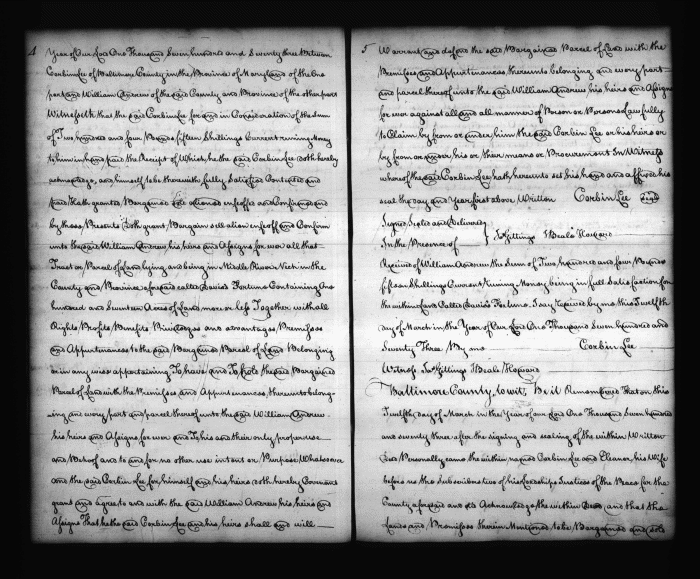 4
Year of Our Lord One Thousand Seven hundred and Seventy three Between
Corbin Lee of Baltimore County in the Province of Maryland of the One
part and William Andrew of the said County and Province of the other part
Witnesseth that the said Corbin Lee for and in Consideration of the Sum
of Two hundred and four Pounds fifteen Shillings Current running Money
to him in hand paid the Receipt of Which he the said Corbin Lee doth hereby
acknowledge, and himself to be therewith fully Satisfied Contented and
paid Hath granted Bargained sold aliened enfeoffed and Confirmed and
by these Presents doth grant Bargain sell alien enfeoff and Confirm
unto the said William Andrew his heirs and Assigns for ever all that
Tract or Parcel of Land lying and being in Middle River Neck in the
County and Province aforesaid called Davis's Fortune Containing One
hundred and Seventeen Acres of Land more or less Together with all
Rights Profits Benefits Priviledges and advantages Premisses
and Appurtenances to the said Bargained Parcel of Land Belonging
or in any wise appertaining, To have and To hold the said Bargained
Parcel of Land with the Premisses and Appurtenances thereunto belong-
ing and every part and parcel thereof unto the said William Andrew
his heirs and Assigns for ever and To his and their only proper use
and Behoof and to and for no other use intent or Purpose Whatsoever
and the said Corbin Lee for himself and his heirs doth hereby Covenant
grant and agree to and with the said William Andrew his heirs and
Assigns That he the said Corbin Lee and his heirs shall and will
5
Warrant and defend the said Bargained Parcel of Land with the
Premisses and Appurtenances thereunto belonging and every part
and parcel thereof unto the said William Andrew his heirs and Assigns
for ever against all and all manner of Person or Persons Lawfully
to Claim by from or under him the said Corbin Lee or his heirs or
by from or under his or their means or Procurement In Witness
whereof the said Corbin Lee hath hereunto set his hand and affixed his
seal the day and Year first above Written Corbin Lee seal
Signed Sealed and Delivered
In the Presence of } Js. Gittings Beale Howard
Received of William Andrew the Sum of Two hundred and four Pounds
fifteen Shillings Current running Money being in full Satisfaction for
the within Land Called Davis's Fortune. I say received by me this Twelfth
day of March in the Year of Our Lord One Thousand Seven hundred and
Seventy Three By me Corbin Lee
Witness Js. Gittings Beale Howard
Baltimore County, to wit, Be it Remembred that on this
Twelfth Day of March in the Year of our Lord One Thousand Seven hundred
and seventy three after the signing and sealing of the within Written
Deed Personally came the within named Corbin Lee and Eleanor his Wife
before us the subscribers two of his Lordships Justices of the Peace for the
County aforesaid and did Acknowledge the within Deed and that the
Lands and Premisses therein Mentioned to be Bargained and sold